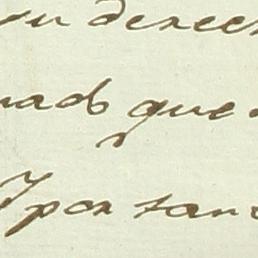 su derec
nado que
Y por tan